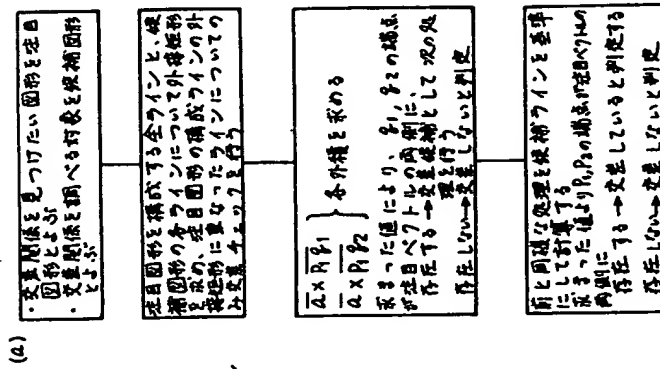 (a)
・交差関係を見つけたい図形を注目
図形とよぶ
・交差関係を調べる対象を候補図形
とよぶ
注目図形を構成する全ラインと、候
補図形の各ラインについて外接矩形
を求め、注目図形の構成ラインの外
接矩形に重なったラインについての
み交差チェックを行う
a × P1q1
a × P1q2 } 各外積を求める
求まった値により、q1, q2の端点
が注目ベクトルの両側に、
存在する→交差候補として次の処
理を行う
存在しない→交差しないと判定
前と同様な処理を候補ラインを基準
にして計算する
求まった値よりP1,P2の端点が注目ベクトルの
両側に
存在する→交差していると判定する
存在しない→交差しないと判定